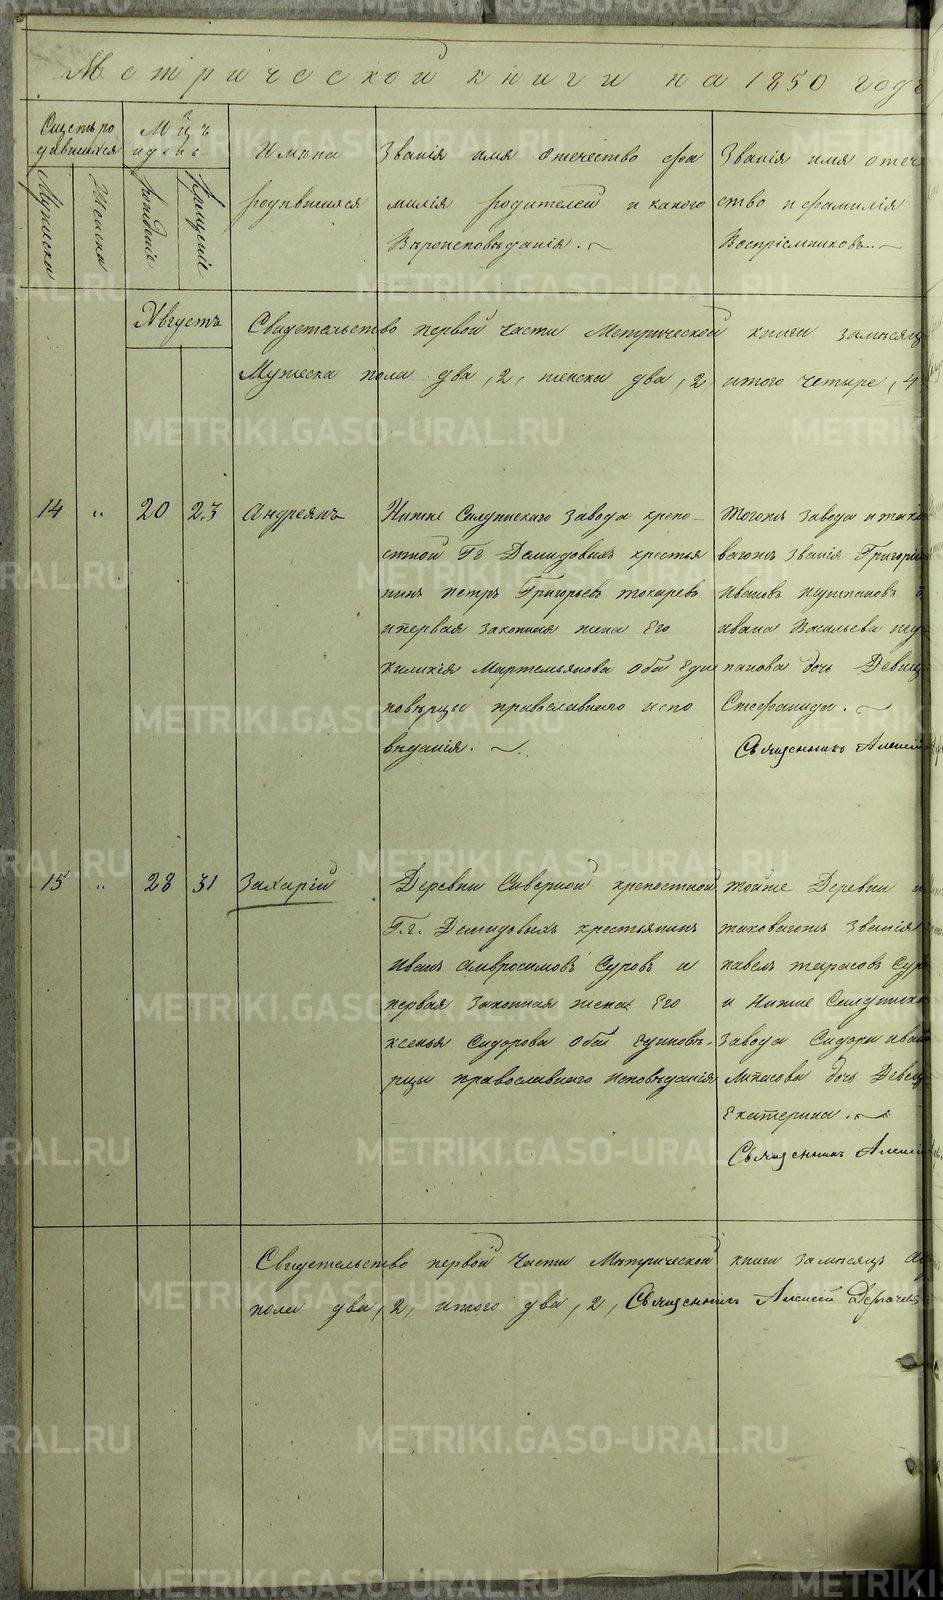 Метрической книги на 1850 годъ
Счетъ ро
дившихся
Мужеска
Женска
Мцъ
и день
Рожденіе
Крещеніе
Имена
родившихся
Званія имя отечество фа
милія родителей и какого
Вѣроисповѣданія.
Званія имя отече
ство и фамилія
Воспріемниковъ.
Августъ
Свидетельство первой части Метрической книги замѣсяцъ
Мужеска пола два, 2, женска два, 2, итого четыре, 4
14 " 20 23 Андреянъ
Нижне Салдинскаго завода крепо-
стной Гг Демидовыхъ крестья
нинъ петръ Григорьевъ токаревъ
ипервая законная жена Его
Киликія Мартемьянова оба Еди
новѣрцы православнаго испо
вѣданія.
Тогожъ завода и тако
вагожъ званія Григорій
Ивановъ
Ивана Васильева
панова дочь Девица
Стефанида.
Священникъ Алексій
15 " 28 31 Захарій
Деревни Северной крепостной
Г.г. Демидовыхъ крестьянинъ
Иванъ Амвросимовъ Суровъ и
первая законная жена Его
ксенья Сидорова оба Единовѣ-
рцы православнаго исповѣданія
тойже Деревни и
таковагожъ званія
павелъ тарасовъ Суро
и Нижне Салдинска
завода Сидора Ивано
дочь Девица
Екатерина.
Священникъ Алексій
Свидетельство первой Части Метрической книги замѣсяцъ Ав
пола два, 2, итого два, 2, Священникъ Алексій Дерягинъ
METRIKI.GASO-URAL.RU